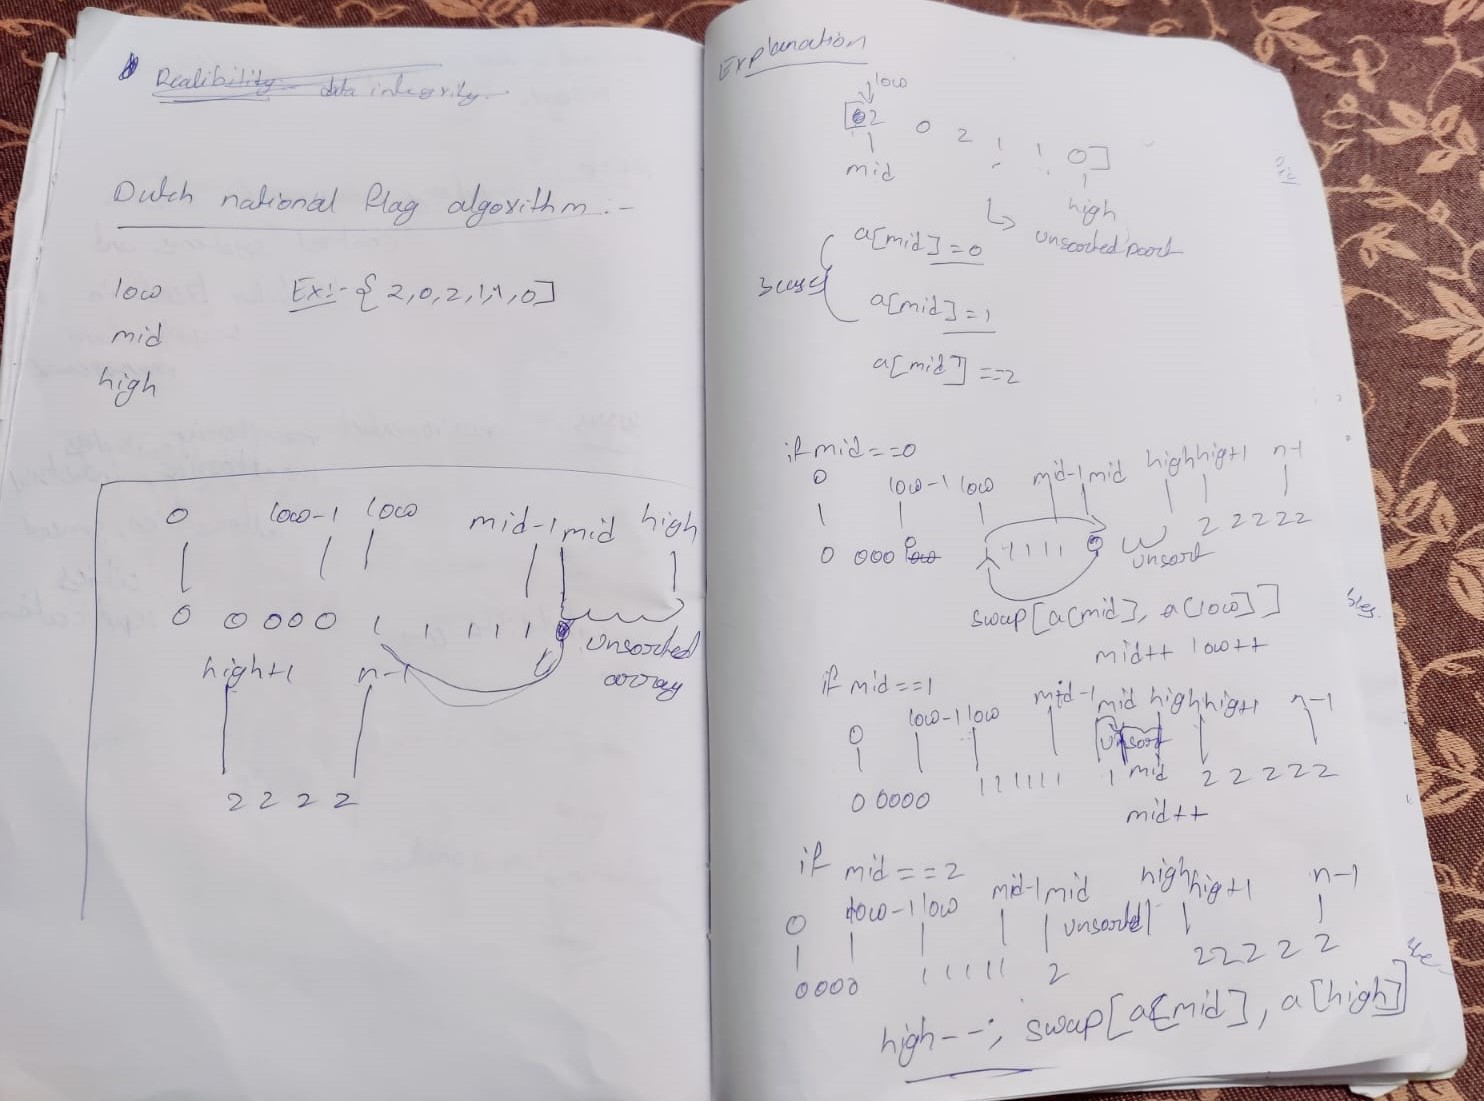 Realibility data integrity
Dutch national flag algorithm :-
low Ex:- { 2,0,2,1,1,0]
mid
high
0 low-1 low mid-1 mid high
0 0 0 0 0 1 1 1 1 1 unsorted
array
high+1 n-1
2 2 2 2
Explanation
low
[2 0 2 1 1 0]
mid high
unsorted part
3 cases a[mid]=0
a[mid]=1
a[mid]==2
if mid==0
0 low-1 low mid-1 mid high high+1 n-1
0 0 0 0 0 1 1 1 1 1 0 unsort 2 2 2 2 2
swap[a[mid], a[low]]
mid++ low++
if mid==1
0 low-1 low mid-1 mid high high+1 n-1
unsort
0 0 0 0 0 1 1 1 1 1 1 1 mid 2 2 2 2 2
mid++
if mid==2
0 low-1 low mid-1 mid high high+1 n-1
unsorted
0 0 0 0 1 1 1 1 1 2 2 2 2 2 2
high--; swap[a[mid], a[high]]